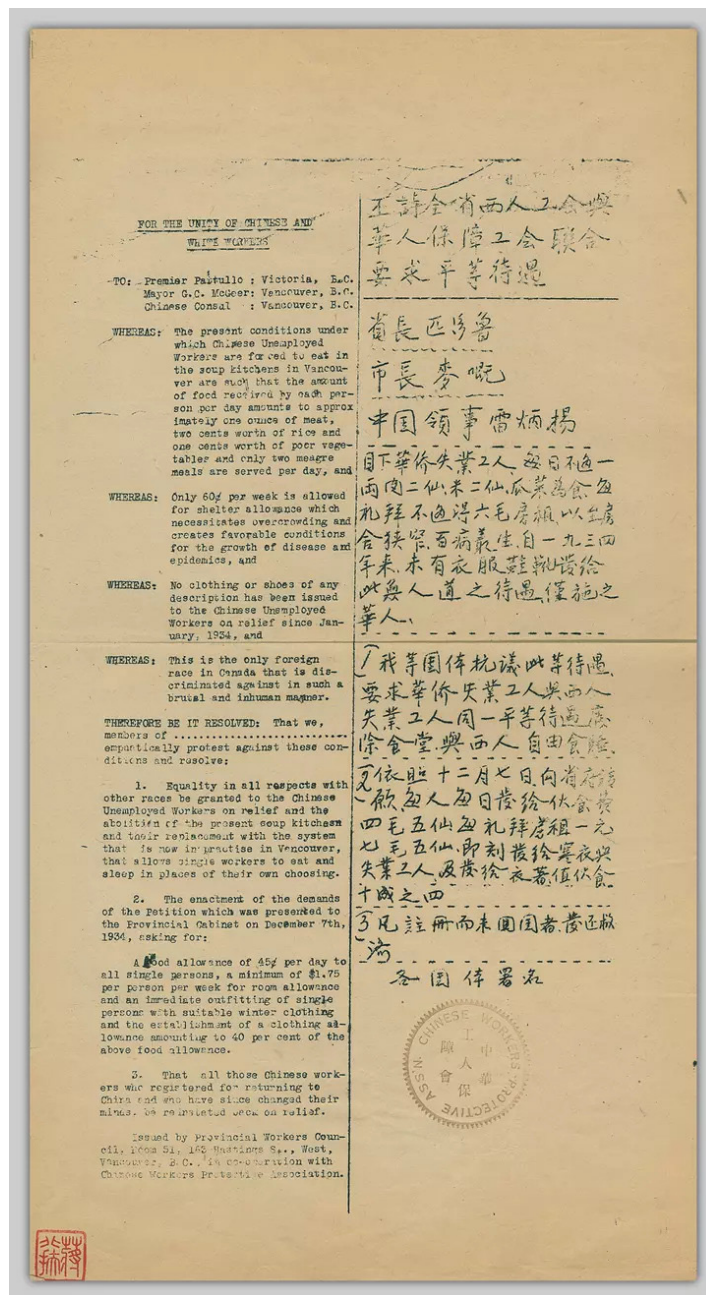 FOR THE UNITY OF CHINESE AND
WHITE WORKERS
TO: Premier Pattullo : Victoria, B.C.
Mayor G.C. McGeer: Vancouver, B.C.
Chinese Consal : Vancouver, B.C.
WHEREAS: The present conditions under
which Chinese Unemployed
Workers are forced to eat in
the soup kitchens in Vancou-
ver are such that the amount
of food received by each per-
son per day amounts to approx
imately one ounce of meat,
two cents worth of rice and
one cents worth of poor vege-
tables and only two meagre
meals are served per day, and
WHEREAS: Only 60¢ per week is allowed
for shelter allowance which
necessitates overcrowding and
creates favorable conditions
for the growth of disease and
epidemics, and
WHEREAS: No clothing or shoes of any
description has been issued
to the Chinese Unemployed
Workers on relief since Jan-
uary, 1934, and
WHEREAS: This is the only foreign
race in Canada that is dis-
criminated against in such a
brutal and inhuman manner.
THEREFORE BE IT RESOLVED: That we,
members of ...........................
emphatically protest against these con-
ditions and resolve:
1. Equality in all respects with
other races be granted to the Chinese
Unemployed Workers on relief and the
abolition of the present soup kitchens
and their replacement with the system
that is now in practise in Vancouver,
that allows single workers to eat and
sleep in places of their own choosing.
2. The enactment of the demands
of the Petition which was presented to
the Provincial Cabinet on December 7th,
1934, asking for:
A food allowance of 45¢ per day to
all single persons, a minimum of $1.75
per person per week for room allowance
and an immediate outfitting of single
persons with suitable winter clothing
and the establishment of a clothing al-
lowance amounting to 40 per cent of the
above food allowance.
3. That all those Chinese work-
ers who registered for returning to
China and who have since changed their
minds, be reinstated back on relief.
Issued by Provincial Workers Coun-
cil, Room 51, 163 Hastings St., West,
Vancouver, B.C., in co-operation with
Chinese Workers Protective Association.
全省西人工会與
華人保障工会聯合
要求平等待遇
省長匹多魯
市長麥嘅
中国領事雷炳揚
目下華侨失業工人、每日不過一
両肉二仙、米二仙、瓜菜為食、每
礼拜不過得六毛房租、以至房
舍狹窄、百病叢生、自一九三四
年来、未有衣服鞋靴發给
此無人道之待遇、僅施之
華人、
1 我等团体抗議此等待遇、
要求華侨失業工人與西人
失業工人同一平等待遇、廢
除食堂、與西人自由食睡、
2 依照十二月七日、向省府請
願、每人每日發给伙食費
四毛五仙、每礼拜房租一元
七毛五仙、即刻發给寒衣與
失業工人、及發给衣着、值伙食
十成之四
3 凡註册而未回国者、發还救
济
各团体署名
CHINESE WORKERS PROTECTIVE ASS'N.
中華
工人保
障會